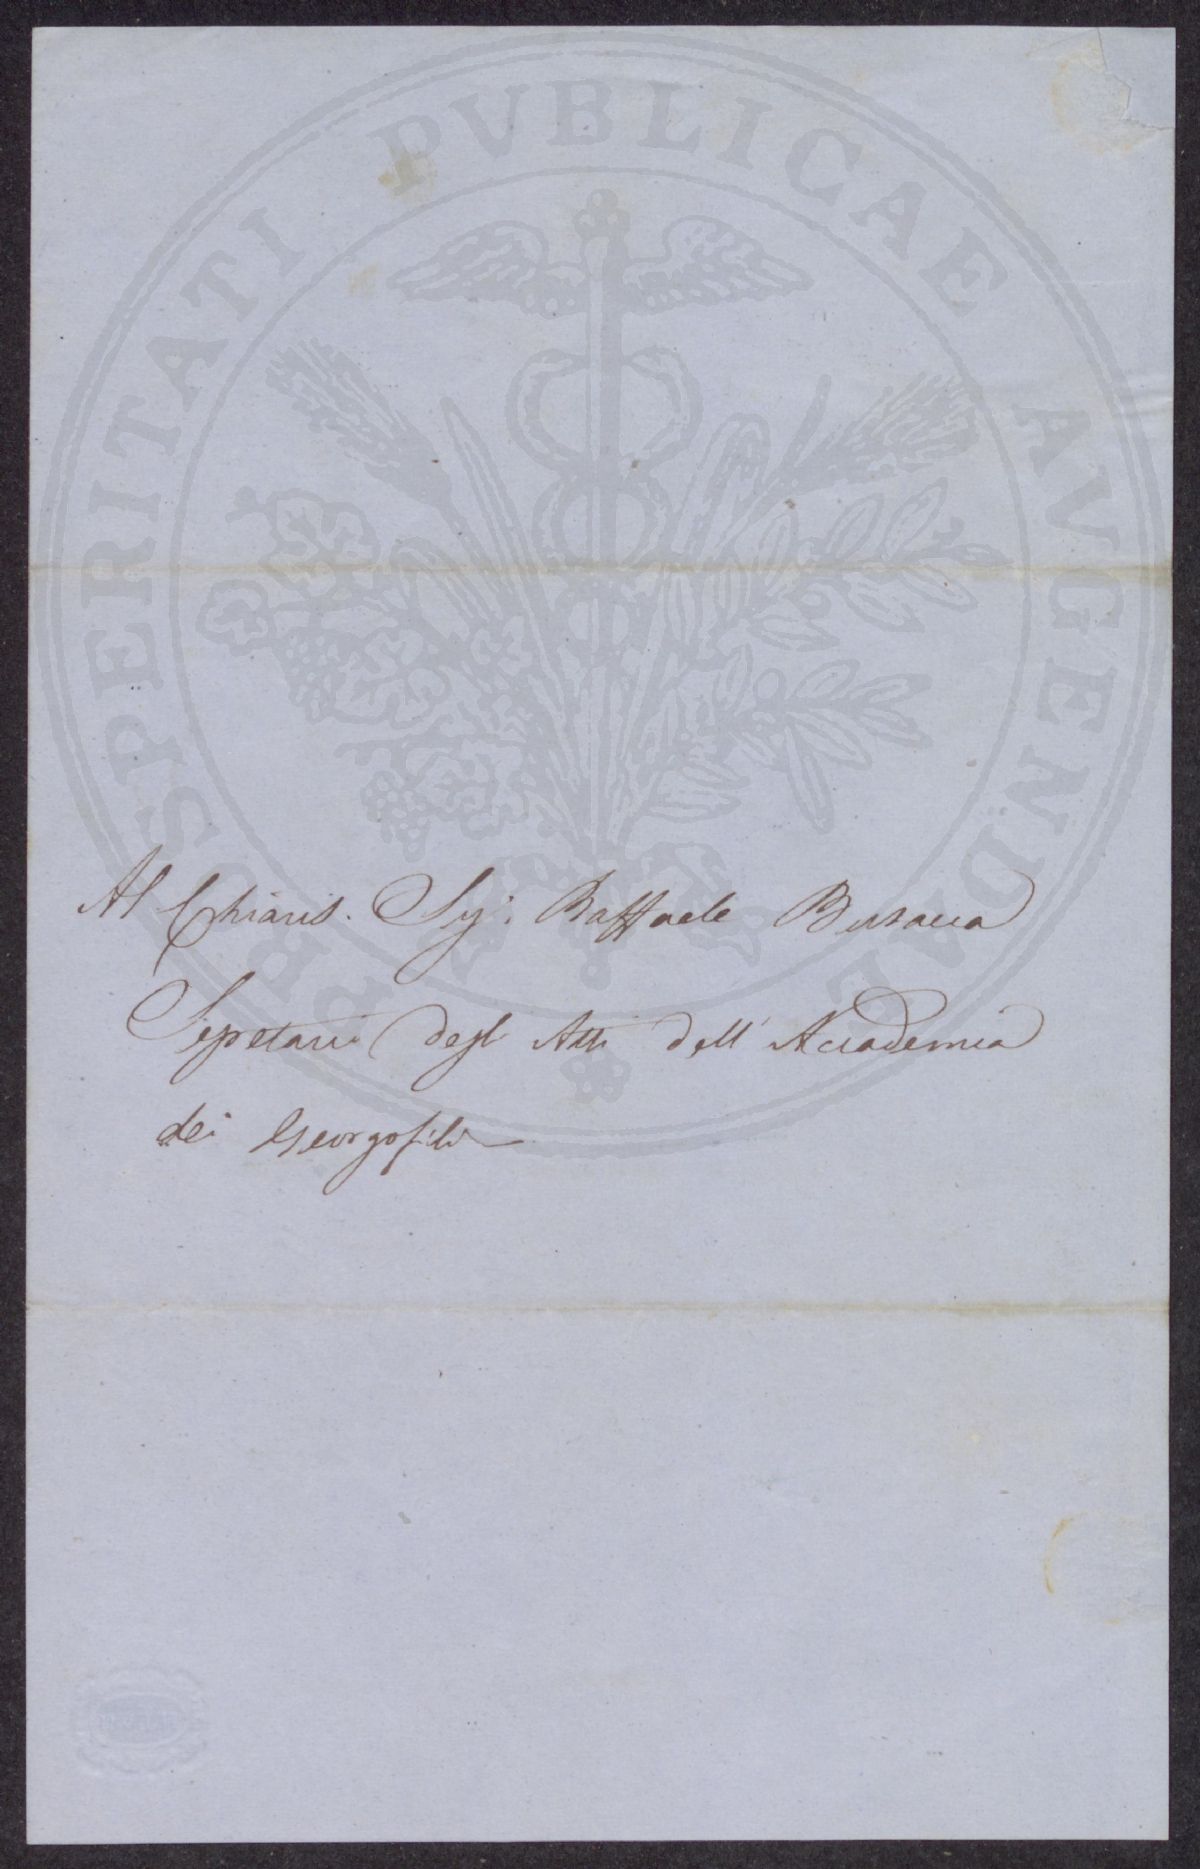 PROSPERITATI PVBLICAE AVGENDAE
Al Chiaris. Sig. Raffaele Busacca
Segretario degli Atti dell' Accademia
dei Georgofili